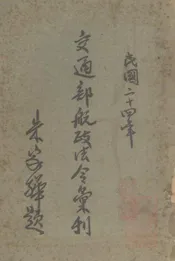 民國二十四年
交通部航政法令彙刊
朱家驊題